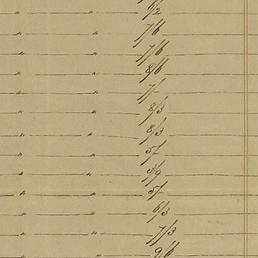 6/2
" " 7/6
" " 7/6
" " 8/6
" " 7/-
" " 8/3
" " 8/3
" " 5/-
" " 3/9
" " 5/-
" " 6/3
" " 7/3
" 9/6